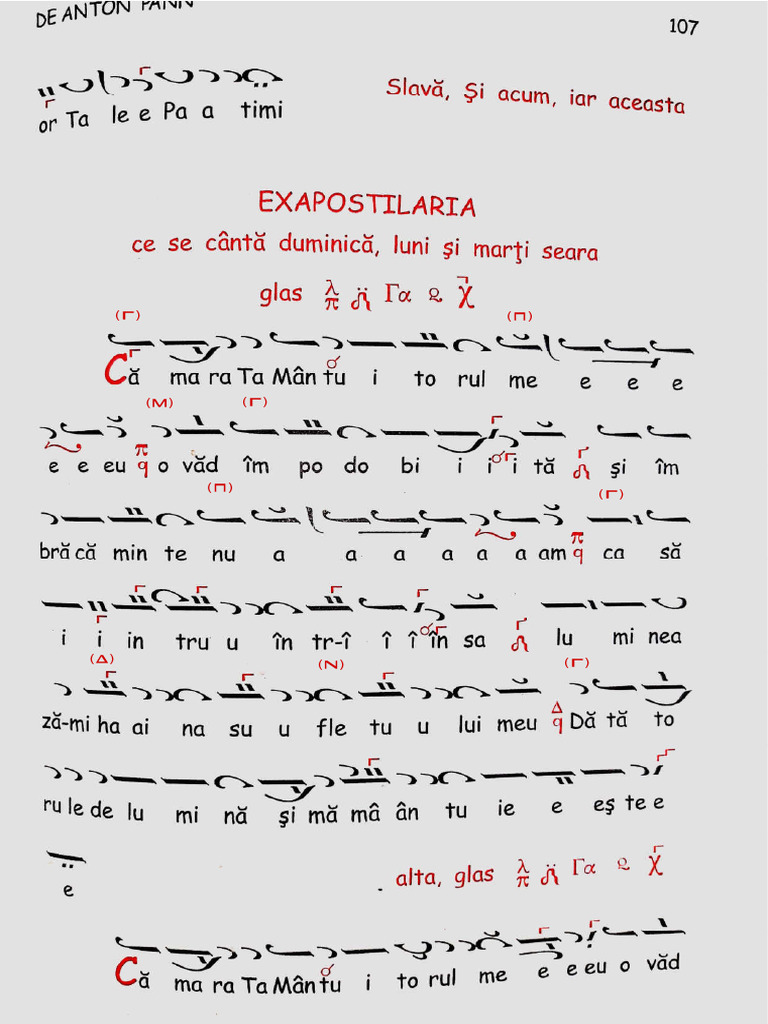 DE ANTON PANN
107
or Ta le e Pa a timi
Slavă, Şi acum, iar aceasta
EXAPOSTILARIA
ce se cântă duminică, luni şi marţi seara
glas λ π Γα
(Γ) (Π)
Că ma ra Ta Mân tu i to rul me e e e
(M) (Γ)
e e eu π q o văd îm po do bi i i i tă şi îm
(Π) (Γ)
bră că min te nu a a a a a a am π q ca să
i i in tru u în tr-î î î în sa lu mi nea
(Δ) (N) (Γ)
ză-mi ha ai na su u fle tu u lui meu Δ q Dă tă to
ru le de lu mi nă şi mă mâ ân tu ie e eş te e
e
alta, glas λ π Γα
Că ma ra Ta Mân tu i to rul me e e eu o văd